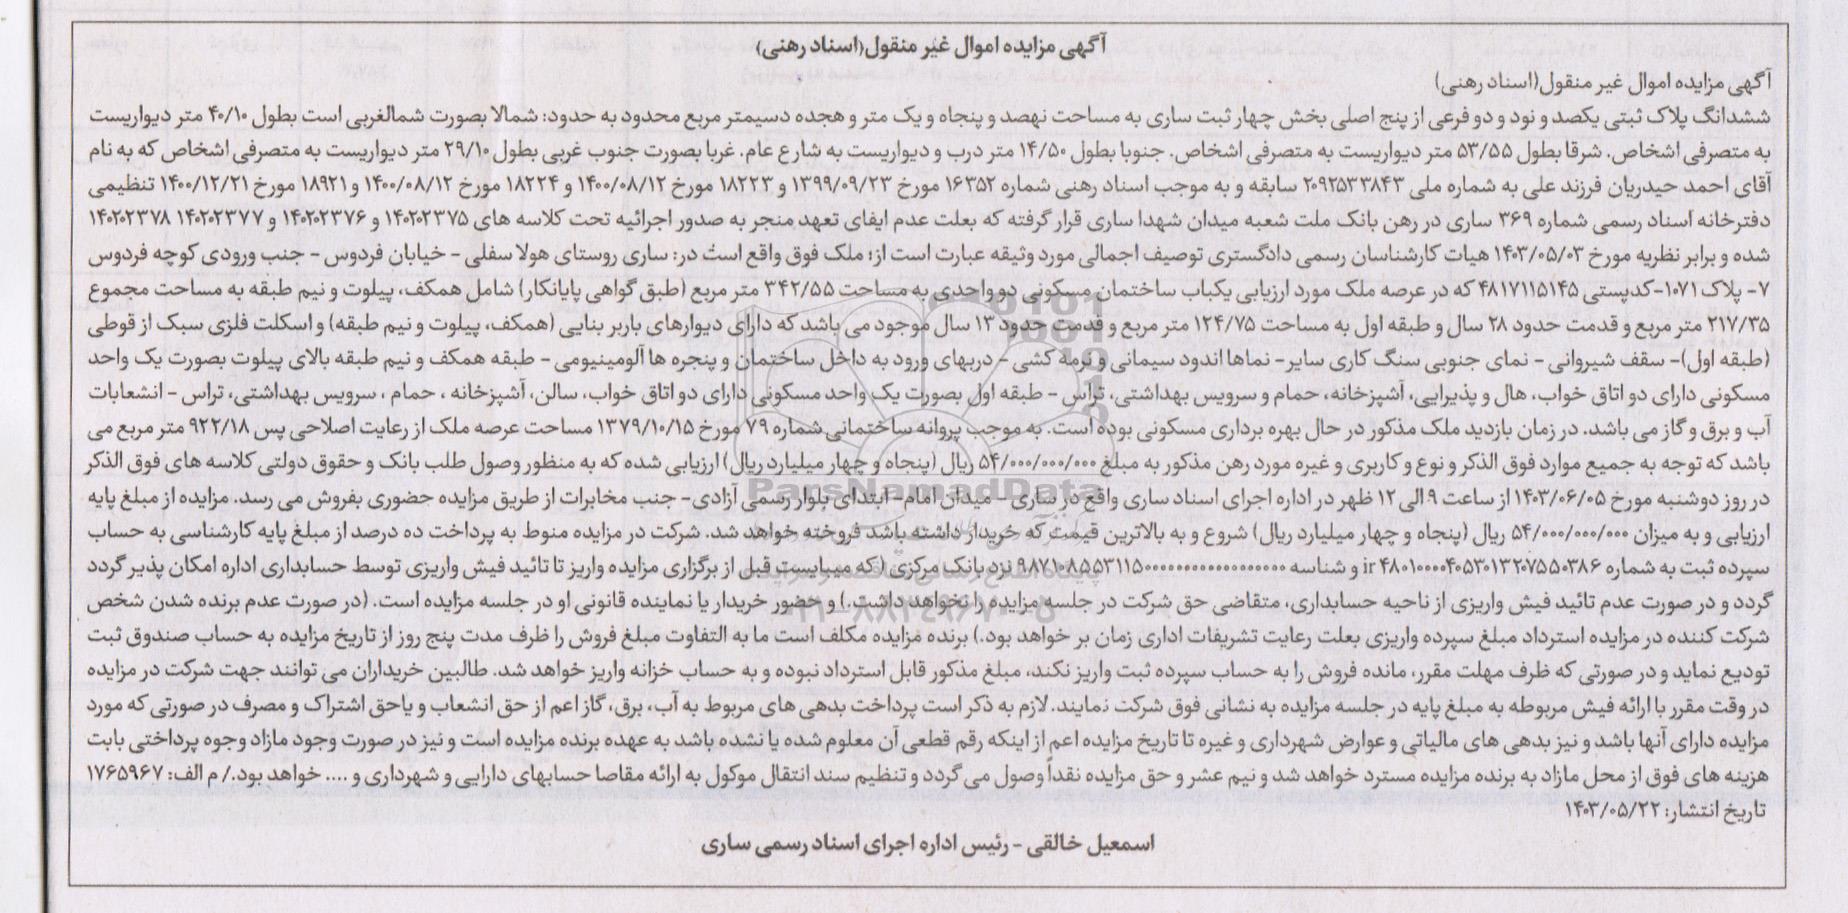 آگهی مزایده اموال غیر منقول(اسناد رهنی)
آگهی مزایده اموال غیر منقول(اسناد رهنی)
ششدانگ پلاک ثبتی یکصد و نود و دو فرعی از پنج اصلی بخش چهار ثبت ساری به مساحت نهصد و پنجاه و یک متر و هجده دسیمتر مربع محدود به حدود: شمالا بصورت شمالغربی است بطول ۴۰/۱۰ متر دیواریست
به متصرفی اشخاص. شرقا بطول ۵۳/۵۵ متر دیواریست به متصرفی اشخاص. جنوبا بطول ۱۴/۵۰ متر درب و دیواریست به شارع عام. غربا بصورت جنوب غربی بطول ۲۹/۱۰ متر دیواریست به متصرفی اشخاص که به نام
آقای احمد حیدریان فرزند علی به شماره ملی ۲۰۹۲۵۳۳۸۴۳ سابقه و به موجب اسناد رهنی شماره ۱۶۳۵۲ مورخ ۱۳۹۹/۰۹/۲۳ و ۱۸۲۲۳ مورخ ۱۴۰۰/۰۸/۱۲ و ۱۸۲۲۴ مورخ ۱۴۰۰/۰۸/۱۲ و ۱۸۹۲۱ مورخ ۱۴۰۰/۱۲/۲۱ تنظیمی
دفترخانه اسناد رسمی شماره ۳۶۹ ساری در رهن بانک ملت شعبه میدان شهدا ساری قرار گرفته که بعلت عدم ایفای تعهد منجر به صدور اجرائیه تحت کلاسه های ۱۴۰۲۰۲۳۷۵ و ۱۴۰۲۰۲۳۷۶ و ۱۴۰۲۰۲۳۷۷ ۱۴۰۲۰۲۳۷۸
شده و برابر نظریه مورخ ۱۴۰۳/۰۵/۰۳ هیات کارشناسان رسمی دادگستری توصیف اجمالی مورد وثیقه عبارت است از: ملک فوق واقع است در: ساری روستای هولا سفلی - خیابان فردوس - جنب ورودی کوچه فردوس
۷- پلاک ۱۰۷۱-کدپستی ۴۸۱۷۱۱۵۱۴۵ که در عرصه ملک مورد ارزیابی یکباب ساختمان مسکونی دو واحدی به مساحت ۳۴۲/۵۵ متر مربع (طبق گواهی پایانکار) شامل همکف، پیلوت و نیم طبقه به مساحت مجموع
۲۱۷/۳۵ متر مربع و قدمت حدود ۲۸ سال و طبقه اول به مساحت ۱۲۴/۷۵ متر مربع و قدمت حدود ۱۳ سال موجود می باشد که دارای دیوارهای باربر بنایی (همکف، پیلوت و نیم طبقه) و اسکلت فلزی سبک از قوطی
(طبقه اول)- سقف شیروانی - نمای جنوبی سنگ کاری سایر- نماها اندود سیمانی و نرمه کشی - دربهای ورود به داخل ساختمان و پنجره ها آلومینیومی - طبقه همکف و نیم طبقه بالای پیلوت بصورت یک واحد
مسکونی دارای دو اتاق خواب، هال و پذیرایی، آشپزخانه، حمام و سرویس بهداشتی، تراس - طبقه اول بصورت یک واحد مسکونی دارای دو اتاق خواب، سالن، آشپزخانه ، حمام ، سرویس بهداشتی، تراس - انشعابات
آب و برق و گاز می باشد. در زمان بازدید ملک مذکور در حال بهره برداری مسکونی بوده است. به موجب پروانه ساختمانی شماره ۷۹ مورخ ۱۳۷۹/۱۰/۱۵ مساحت عرصه ملک از رعایت اصلاحی پس ۹۲۲/۱۸ متر مربع می
باشد که توجه به جمیع موارد فوق الذکر و نوع و کاربری و غیره مورد رهن مذکور به مبلغ ۵۴/۰۰۰/۰۰۰/۰۰۰ ریال (پنجاه و چهار میلیارد ریال) ارزیابی شده که به منظور وصول طلب بانک و حقوق دولتی کلاسه های فوق الذکر
در روز دوشنبه مورخ ۱۴۰۳/۰۶/۰۵ از ساعت ۹ الی ۱۲ ظهر در اداره اجرای اسناد ساری واقع در ساری - میدان امام- ابتدای بلوار رسمی آزادی- جنب مخابرات از طریق مزایده حضوری بفروش می رسد. مزایده از مبلغ پایه
ارزیابی و به میزان ۵۴/۰۰۰/۰۰۰/۰۰۰ ریال (پنجاه و چهار میلیارد ریال) شروع و به بالاترین قیمت که خریدار داشته باشد فروخته خواهد شد. شرکت در مزایده منوط به پرداخت ده درصد از مبلغ پایه کارشناسی به حساب
سپرده ثبت به شماره ir ۴۸۰۱۰۰۰۰۴۰۵۳۰۱۳۲۰۷۵۵۰۳۸۶ و شناسه نزد بانک مرکزی (که میبایست قبل از برگزاری مزایده واریز تا تائید فیش واریزی توسط حسابداری اداره امکان پذیر گردد
گردد و در صورت عدم تائید فیش واریزی از ناحیه حسابداری، متقاضی حق شرکت در جلسه مزایده را نخواهد داشت.) و حضور خریدار یا نماینده قانونی او در جلسه مزایده است. (در صورت عدم برنده شدن شخص
شرکت کننده در مزایده استرداد مبلغ سپرده واریزی بعلت رعایت تشریفات اداری زمان بر خواهد بود.) برنده مزایده مکلف است ما به التفاوت مبلغ فروش را ظرف مدت پنج روز از تاریخ مزایده به حساب صندوق ثبت
تودیع نماید و در صورتی که ظرف مهلت مقرر، مانده فروش را به حساب سپرده ثبت واریز نکند، مبلغ مذکور قابل استرداد نبوده و به حساب خزانه واریز خواهد شد. طالبین خریداران می توانند جهت شرکت در مزایده
در وقت مقرر با ارائه فیش مربوطه به مبلغ پایه در جلسه مزایده به نشانی فوق شرکت نمایند. لازم به ذکر است پرداخت بدهی های مربوط به آب، برق، گاز اعم از حق انشعاب و یاحق اشتراک و مصرف در صورتی که مورد
مزایده دارای آنها باشد و نیز بدهی های مالیاتی و عوارض شهرداری و غیره تا تاریخ مزایده اعم از اینکه رقم قطعی آن معلوم شده یا نشده باشد به عهده برنده مزایده است و نیز در صورت وجود مازاد وجوه پرداختی بابت
هزینه های فوق از محل مازاد به برنده مزایده مسترد خواهد شد و نیم عشر و حق مزایده نقداً وصول می گردد و تنظیم سند انتقال موکول به ارائه مقاصا حسابهای دارایی و شهرداری و .... خواهد بود./ م الف: ۱۷۶۵۹۶۷
تاریخ انتشار: ۱۴۰۳/۰۵/۲۲
اسمعیل خالقی - رئیس اداره اجرای اسناد رسمی ساری
ParsNamadData